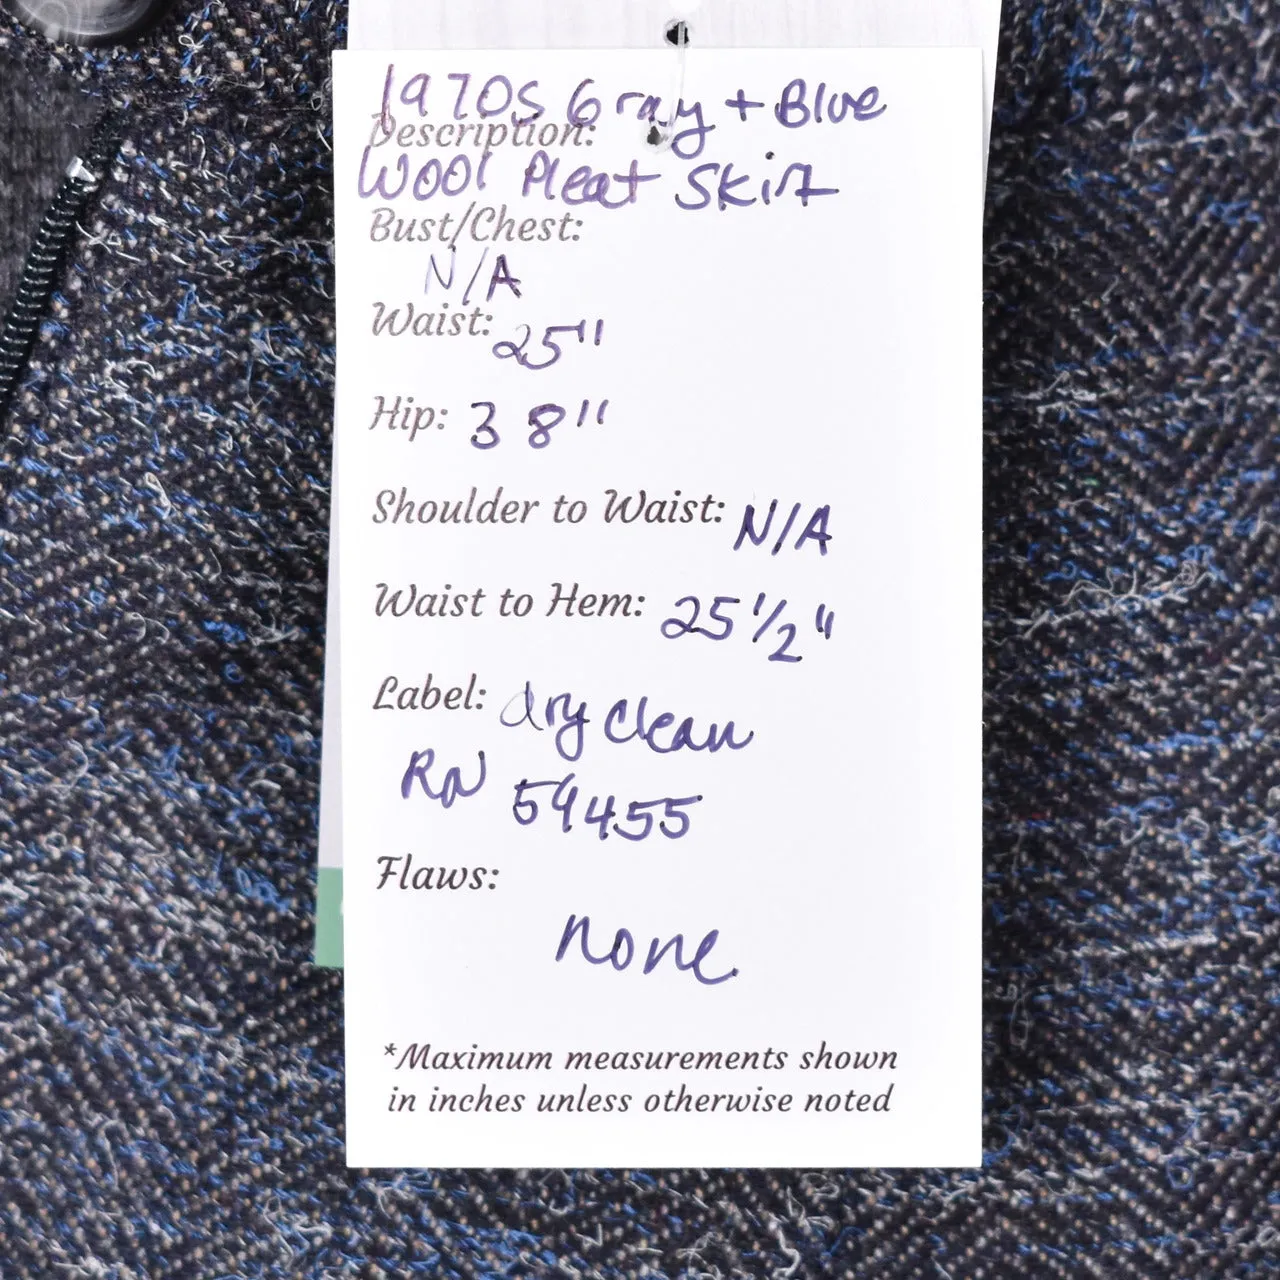 1970s Gray + Blue
Description:
Wool Pleat Skirt
Bust/Chest:
N/A
Waist: 25"
Hip: 38"
Shoulder to Waist: N/A
Waist to Hem: 25 1/2"
Label: dry clean
RN 59455
Flaws:
none
*Maximum measurements shown
in inches unless otherwise noted